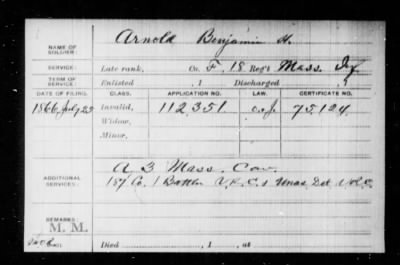 Arnold Benjamin H.
NAME OF SOLDIER:
SERVICE: Late rank, Co. F, 18 Reg't Mass. Inf
TERM OF SERVICE: Enlisted , 1 Discharged , 1
DATE OF FILING. CLASS. APPLICATION NO. LAW. CERTIFICATE NO.
1866 July 23 Invalid, 112.351 75.124
Widow,
Minor,
ADDITIONAL SERVICES: A 3 Mass. Cav.
187 Co. 1 Battn V.R.C. & Unas. Det V.R.C.
REMARKS:
M. M.
Died , 1 , at